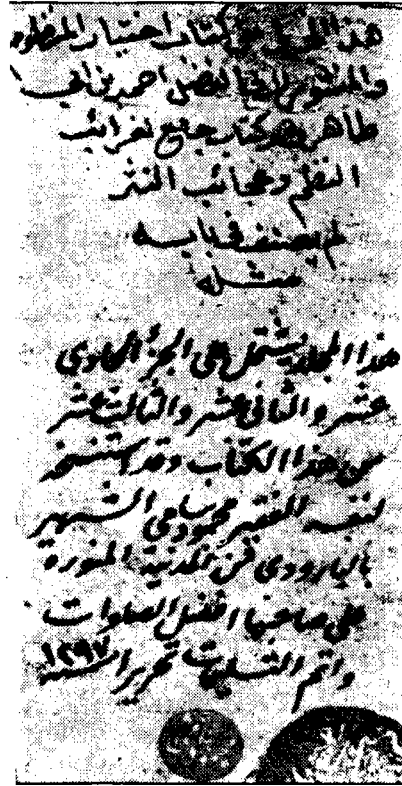 هذا المجلد من كتاب اختيار المنظوم
والمنثور لابي الفضل احمد بن ابي
طاهر وهو كتاب جامع لغرائب
النظم وعجائب النثر
لم يصنف في بابه
مثله
هذا المجلد يشتمل على الجزء الحادي
عشر والثاني عشر والثالث عشر
من هذا الكتاب وقد استنسخه
لنفسه الفقير محمود سامي الشهير
بالبارودي في المدينة المنوره
على صاحبها افضل الصلوات
واتم التسليمات تحريرا سنة ١٢٩٧